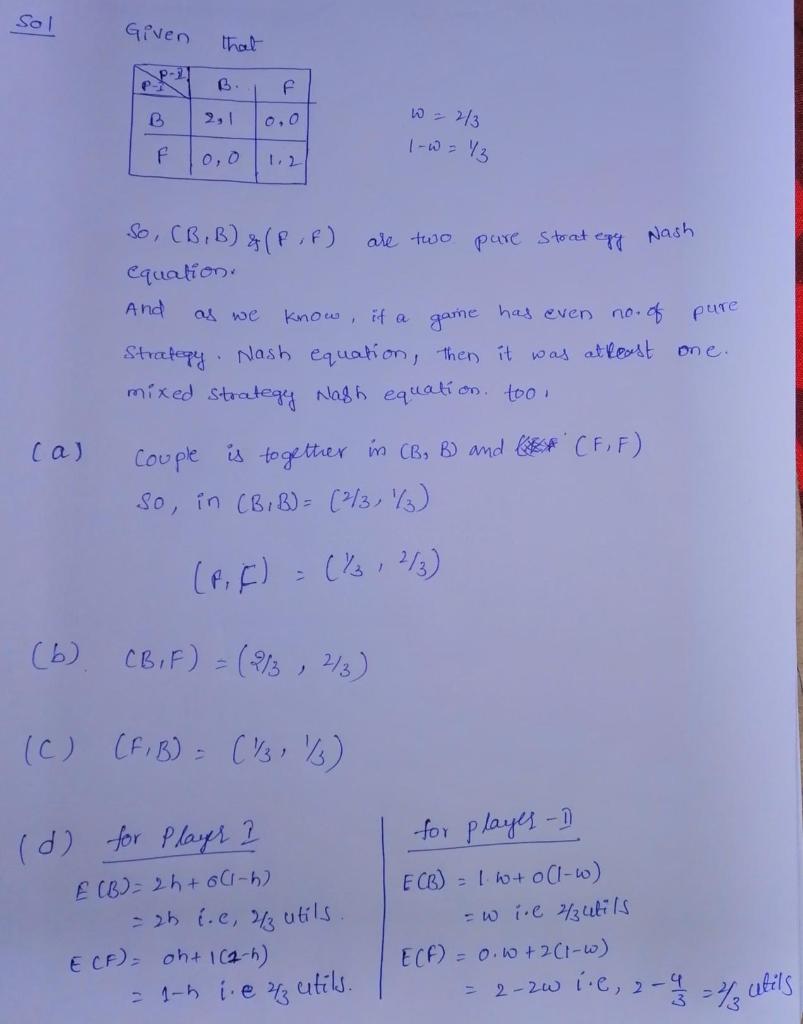 Sol
Given that
P-II
P-I B. F
B 2,1 0,0
F 0,0 1,2
w = 2/3
1-w = 1/3
So, (B,B) & (F,F) are two pure strategy Nash
equation.
And as we know, if a game has even no. of pure
Strategy. Nash equation, then it was atleast one.
mixed strategy Nash equation. too,
(a) Couple is together in (B, B) and (F,F)
So, in (B,B) = (2/3, 1/3)
(F,F) = (1/3, 2/3)
(b) (B,F) = (2/3, 2/3)
(C) (F,B) = (1/3, 1/3)
(d) for Player I
E(B) = 2h + 0(1-h)
= 2h i.e, 2/3 utils.
E(F) = 0h + 1(1-h)
= 1-h i.e 2/3 utils.
for player - II
E(B) = 1.w + 0(1-w)
= w i.e 2/3 utils
E(F) = 0.w + 2(1-w)
= 2-2w i.e, 2 - 4/3 = 2/3 utils